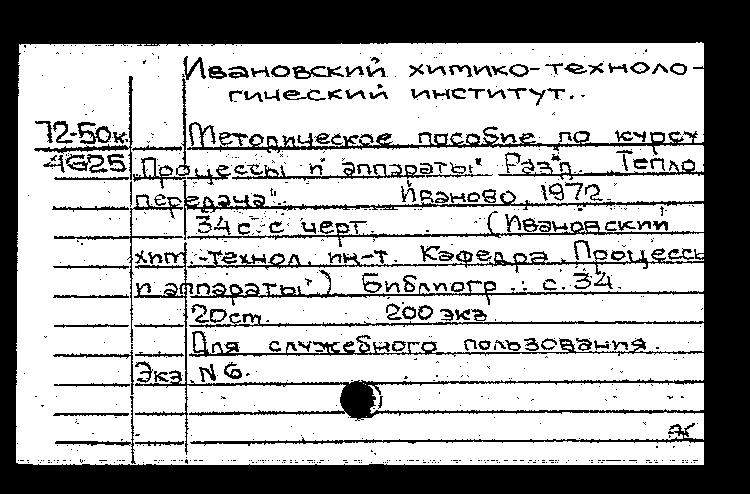 Ивановский химико-техноло-
гический институт..
72-50к Методическое пособие по курсу
4625 „Процессы и аппараты" Разд. „Тепло
передача". Иваново, 1972.
34 с. с черт. (Ивановский
хим.-технол. ин-т. Кафедра „Процессы
и аппараты") Библиогр.: с. 34
20 ст. 200 экз
Для служебного пользования.
Экз. N 6.